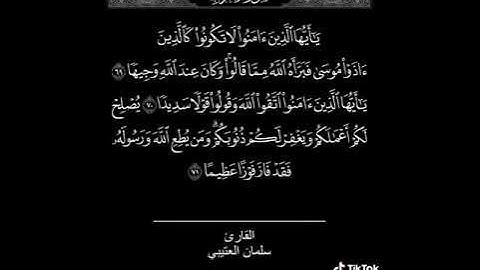 يَـٰٓأَيُّهَا ٱلَّذِينَ ءَامَنُوا۟ لَا تَكُونُوا۟ كَٱلَّذِينَ
ءَاذَوْا۟ مُوسَىٰ فَبَرَّأَهُ ٱللَّهُ مِمَّا قَالُوا۟ ۚ وَكَانَ عِندَ ٱللَّهِ وَجِيهًا ٦٩
يَـٰٓأَيُّهَا ٱلَّذِينَ ءَامَنُوا۟ ٱتَّقُوا۟ ٱللَّهَ وَقُولُوا۟ قَوْلًا سَدِيدًا ٧٠ يُصْلِحْ
لَكُمْ أَعْمَـٰلَكُمْ وَيَغْفِرْ لَكُمْ ذُنُوبَكُمْ ۗ وَمَن يُطِعِ ٱللَّهَ وَرَسُولَهُۥ
فَقَدْ فَازَ فَوْزًا عَظِيمًا ٧١
القارئ
سلمان العتيبي
TikTok